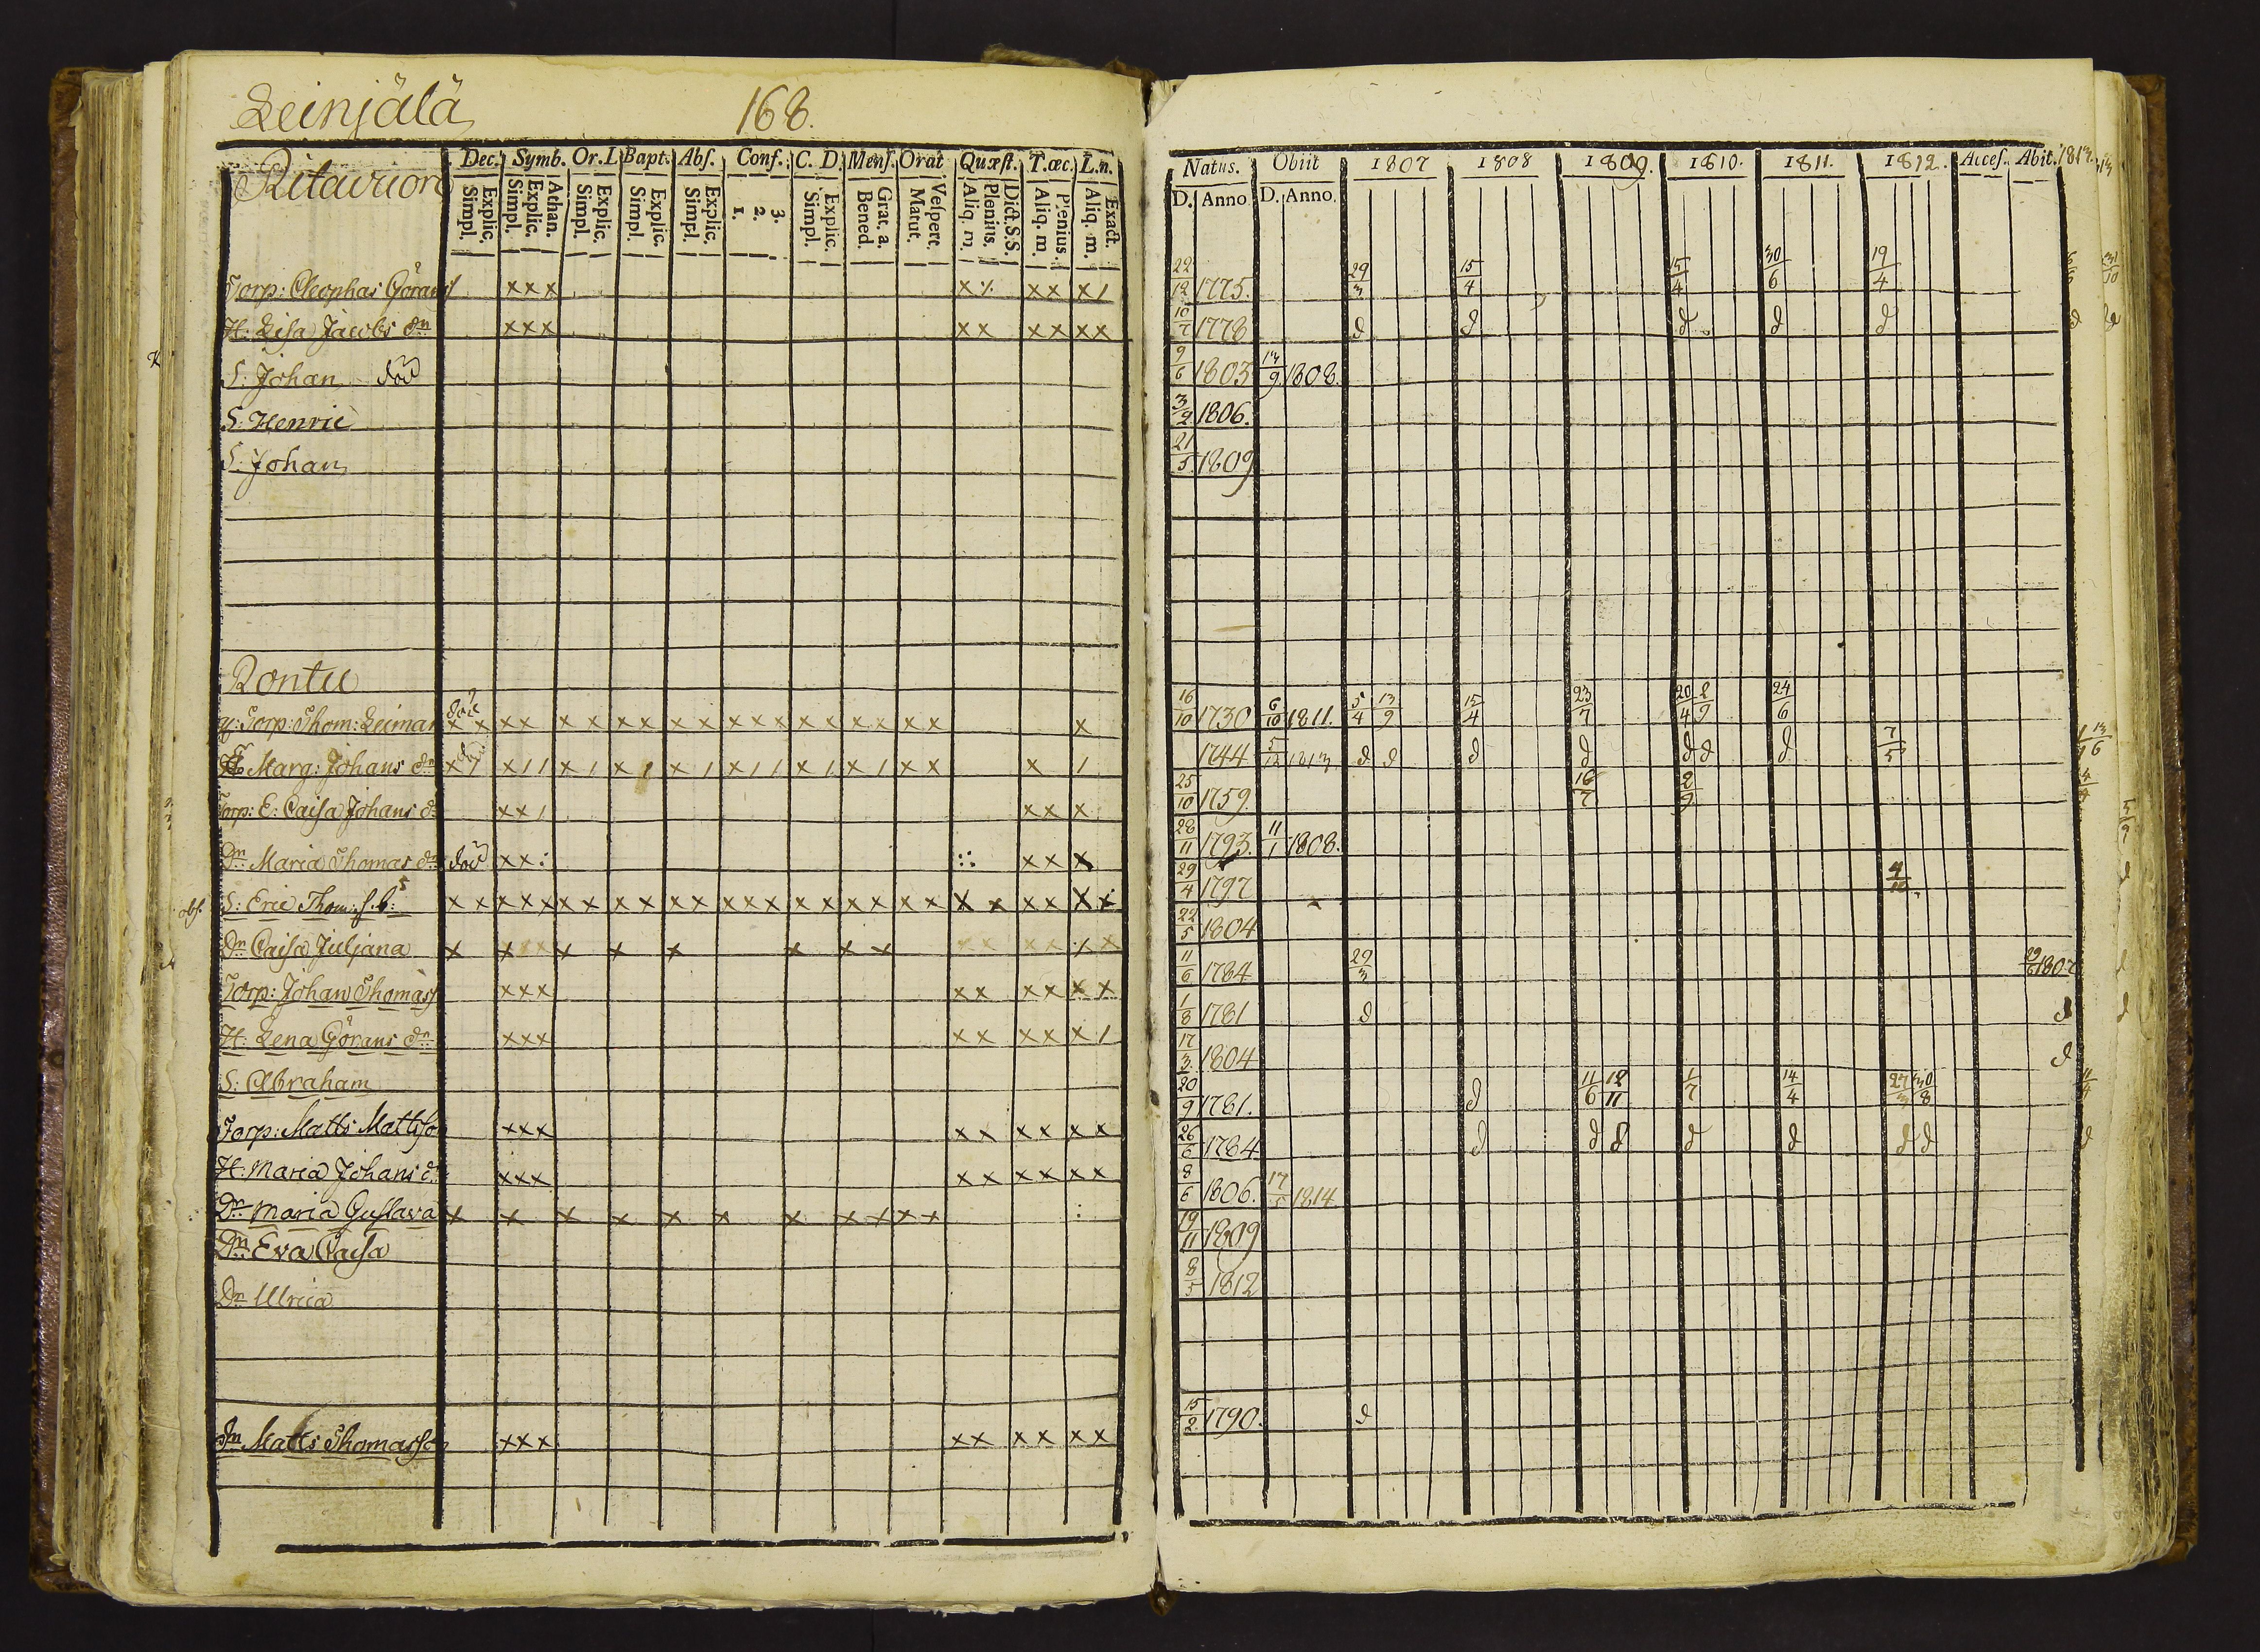 Leinjälä 168.
Ritavuori
Dec. Symb. Or. I. Bapt. Abſ. Conf. C. D. Menſ. Orat Quæſt. T. œc. L. n.
Explic. Simpl. Athan. Explic. Simpl. Explic. Simpl. Explic. Simpl. Explic. Simpl. 3. 2. 1. Explic. Simpl. Grat. a. Bened. Veſpert. Matut. Dict. S. S. Plenius. Aliq. m. Plenius. Aliq. m Exact. Aliq. m.
Natus. Obiit 1807 1808 1809. 1810. 1811. 1812. Acceſ. Abit. 1813.
D. Anno D. Anno.
Torp: Cleophas Görans xxx xx x/ 22/12 1775. 29/3 15/4 15/4 30/6 19/4
H: Lisa Jacobs dn xxx xx xx xx 10/7 1778 d d d d d
S: Johan död 9/6 1803 13/9 1808.
S: Henric 3/2 1806.
S: Johan 21/5 1809
Rontu
Torp: Thom: Leiman död x x xx x x xx xx xxx xx xx xx x 16/10 1730 6/10 1811. 5/4 13/9 15/4 23/7 20/4 2/9 24/6
Marg: Johans dn x/ x// x/ x/ x/ x// x/ x/ xx x / 1744 5/12 1813 d d d d d d d 7/5
Torp: E: Caisa Johans d xx/ xx x 25/10 1759. 16/7 2/9
Dn Maria Thomas dn död xx: :: xx x 28/11 1793. 11/1 1808.
obs. S: Eric Thom: s. b: 5 x x xxx xx xx xx xxx xx xx xx x x xx x 29/4 1797
Dn Caisa Juljana x x x x x x x x 22/5 1804
Torp: Johan Thomass xxx xx xx xx 11/6 1784 29/3 1807
H: Lena Görans dn xxx xx xx x/ 1/8 1781 d d
S: Abraham 17/3 1804 d
Torp: Matts Mattsson xxx xx xx xx 20/9 1781. d 11/6 12/11 1/7 14/4 27/3 30/8
H: Maria Johans d xxx xx xx xx 26/6 1784 d d d d d d d
Dn Maria Gustava x x x x x x x x x x x : 8/6 1806. 17/5 1814
Dn Eva Caisa 19/11 1809
Dn Ulrica 8/5 1812
Dn Matts Thomasson xxx xx xx xx 15/2 1790. d